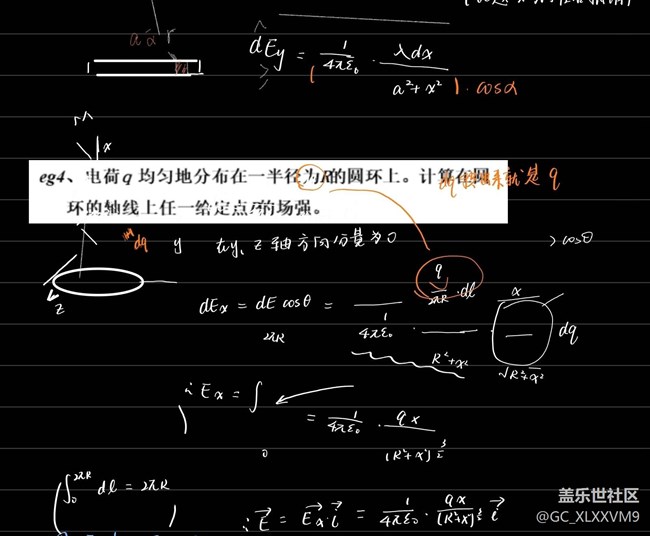 a α r
dEy = 1/4πε₀ · λdx/a²+x² · cosα
x
eg4、电荷q 均匀地分布在一半径为R的圆环上。计算在圆
环的轴线上任一给定点P的场强。
就是 q
dq y 在y、z轴方向分量为0 cosθ
z
q/2πR · dl
dEx = dE cosθ = 1/4πε₀ · R²+x² · x/√R²+x² dq
2πR
∴ Ex = ∫₀ = 1/4πε₀ · qx/(R²+x²)^3/2
∫₀^2πR dl = 2πR
∴ E⃗ = E⃗x·i⃗ = 1/4πε₀ · qx/(R²+x²)^3/2 i⃗
盖乐世社区
@GC_XLXXVM9